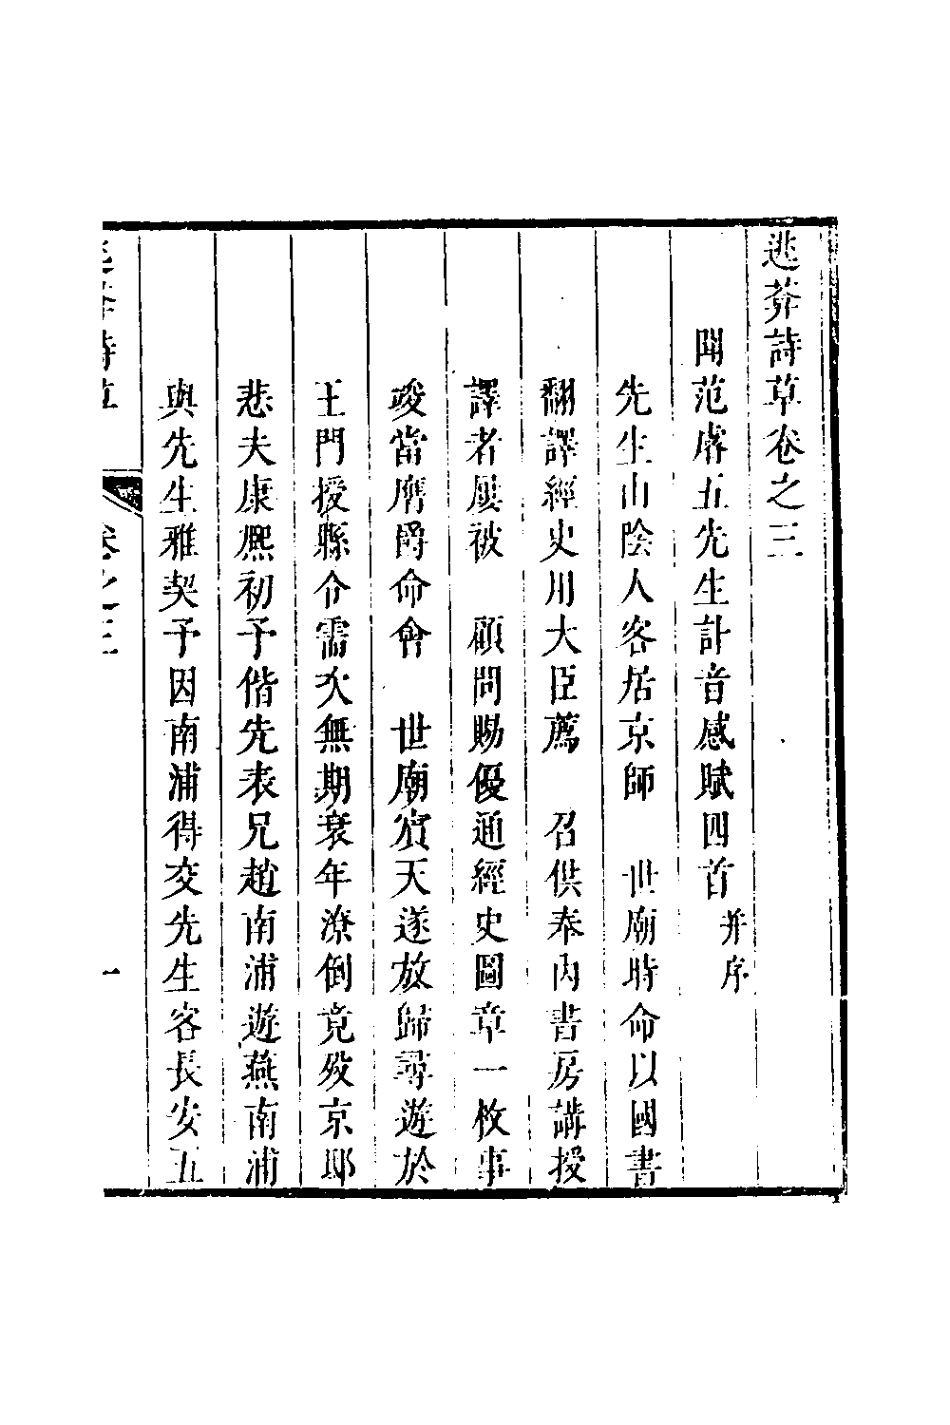 逃葊詩草卷之三
聞范五先生計音感賦四首 并序
先生山陰人客居京師　世廟時命以國書
翻譯經史用大臣薦　召供奉內書房講授
譯者屢被　顧問賜優通經史圖章一枚事
竣當膺爵命會　世廟賓天遂放歸尋遊於
王門授縣令需次無期衰年潦倒竟歿京邸
悲夫康熙初予偕先表兄趙南浦遊燕南浦
與先生雅契予因南浦得交先生客長安五
逃葊詩草　卷之三　一